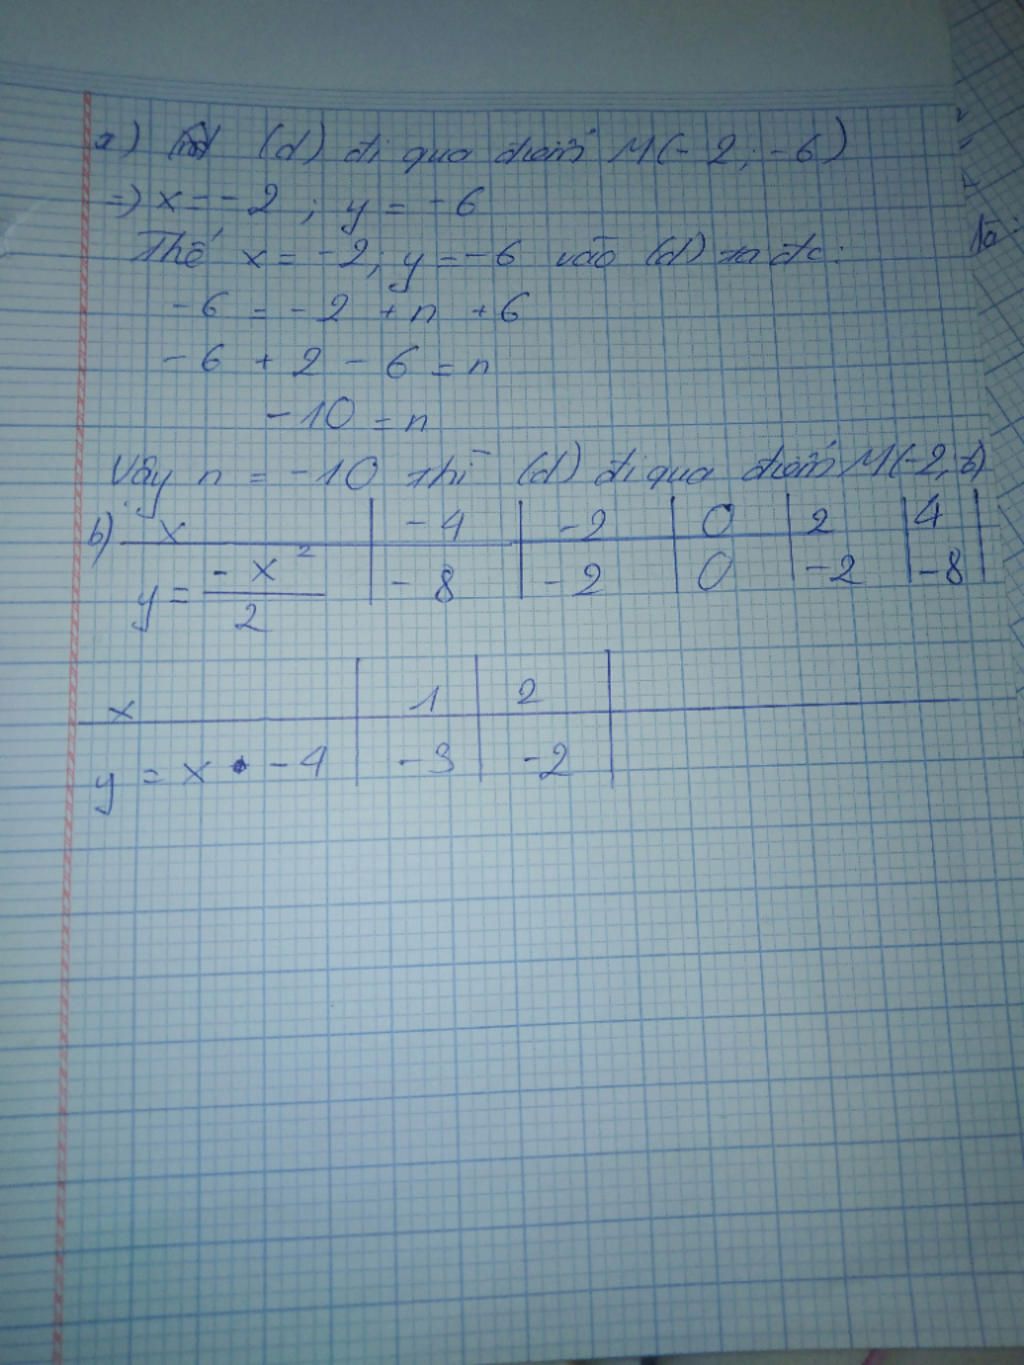 a) (d) đi qua điểm M(-2; -6)
=> x = -2 ; y = -6
Thế x = -2; y = -6 vào (d) ta đc:
-6 = -2 + n + 6
-6 + 2 - 6 = n
-10 = n
Vậy n = -10 thì (d) đi qua điểm M(-2;-6)
b) x | -4 | -2 | 0 | 2 | 4 |
y = -x²/2 | -8 | -2 | 0 | -2 | -8 |
x | 1 | 2 |
y = x - 4 | -3 | -2 |